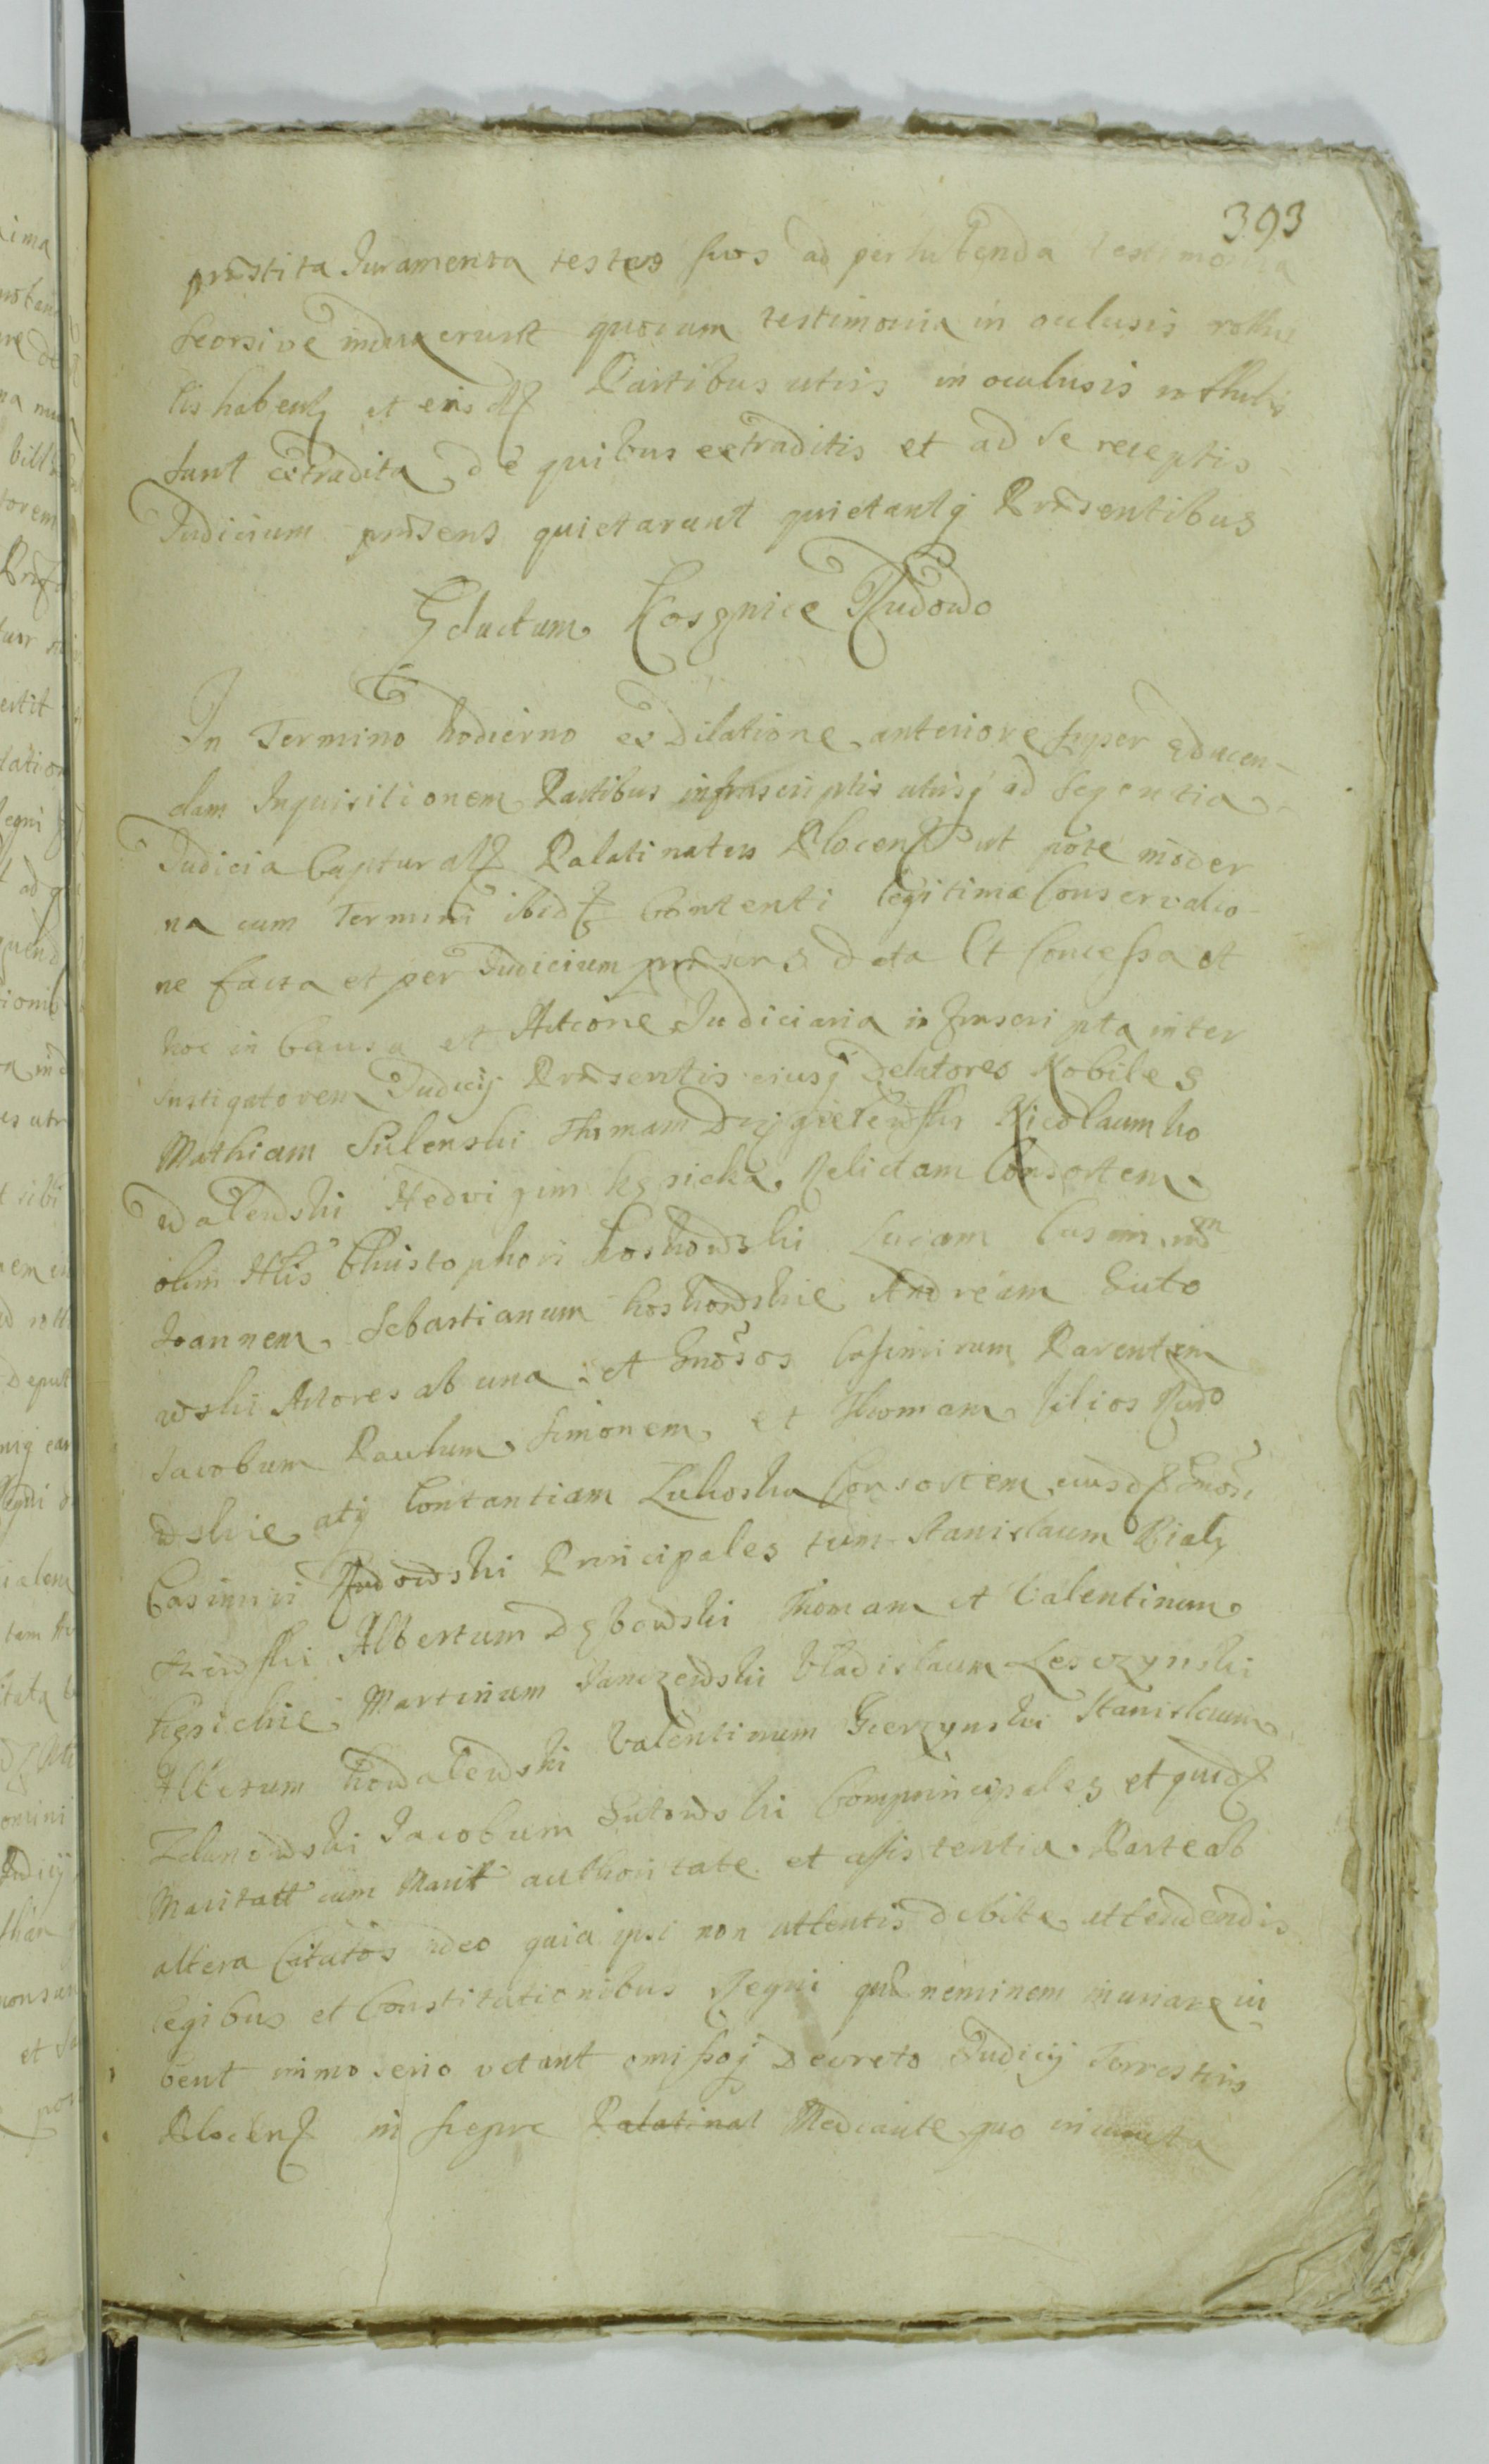 393
prãstita Juramenta testes suos ad perhibenda testimonia
seorsive induxerunt quorum testimonia in oculusis rothu
lis habentq et eisdẽ Partibus utris in oculusis rothulis
sunt extradita de quibus extraditis et ad se receptis
Judicium prãsens quietarunt quietantq Prãsentibus
Eductum Rudowo
In Termino hodierno ex Dilatione anteriore super educen-
dam Inquisitionem Partibus infrascriptis utrisq ad
Judicia Capturalẽ Palatinatus Plocens ut pote moder
na cum Termini ibidẽ Contenti legitima Conservatio-
ne facta et per Judicium prãsens data Et Concessa et
hoc in Causa et Actione Judiciaria infrascripta inter
Instigatorem Judicij Prãsentis eiusq Delatores Nobiles
Mathiam Sulenski Thomam Nicolaum Ko
walewski Hedvigim Relictam Consortem
olim Nlis Christophori Koskowski Lucam
Joannem Sebastianum Koskowskie Andream Suto
wski Actores ab una et Gnõsos Casimirum Parentem
Jacobum Paulum Simonem et Thomam filios Rudo
wskie atq Contantiam Zukoska Consortem eiusdẽ Gnosi
Casimiri Rudowski Principales tum Stanislaum Bialy
Albertum Dębowski Thomam et Valentinum
Kęsickie Martinum Janczewski Vladislaum Lesczynski
Albertum Kowalewski Valentinum Gierzynski Stanislaum
Jacobum Sutowski Comprincipales et quidẽ
Maritatt cum Marit authoritate et assistentia Parte ab
altera Citatos ideo quia ipsi non attentis debite attendendis
legibus et Constitutionibus Regni quẽ neminem iniuriare iu
bent immo serio vetant omissoq Decreto Judicij Terrestris
Plocens in Palatinat Mediante quo